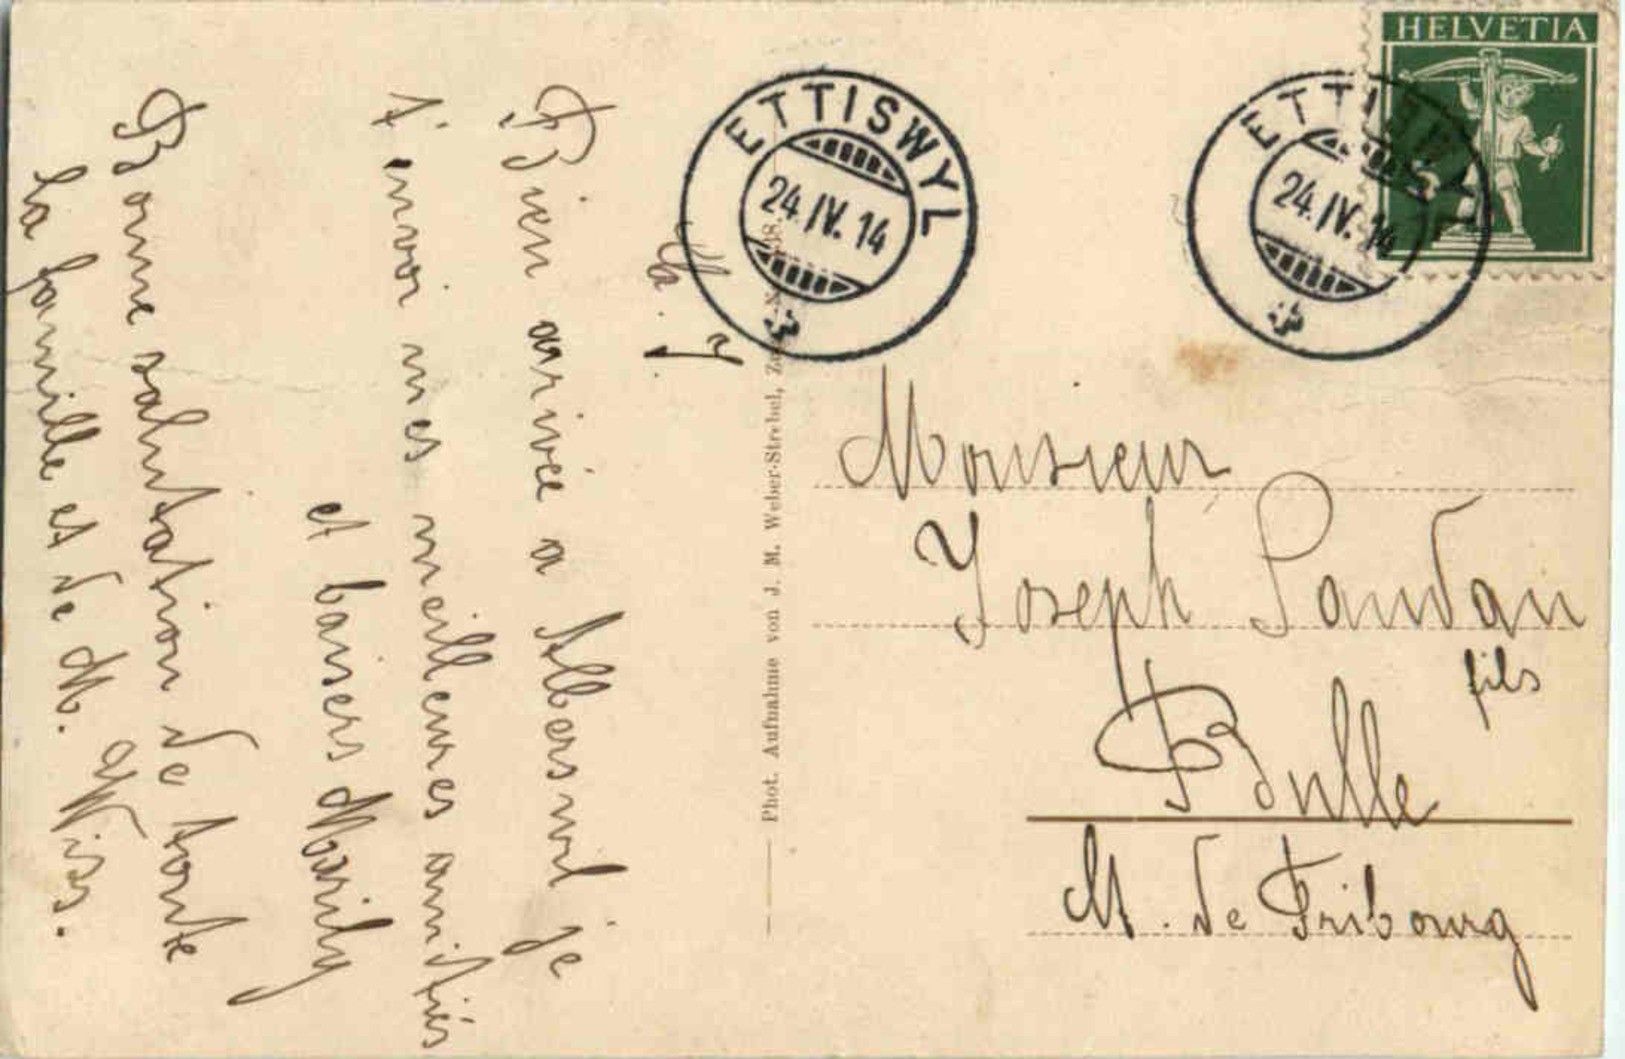 Bien arivée a Albersvil je
t'envoi mes meilleures amitiés
et baisers Marily
Bonne salutation de toute
la famille et de M. Wiss.
Phot. Aufnahme von J. M. Weber-Strebel,
ETTISWYL
24.IV.14
ETTISWYL
24.IV.14
HELVETIA
Monsieur
Joseph Paudan
fils
Bulle
Ct. de Fribourg